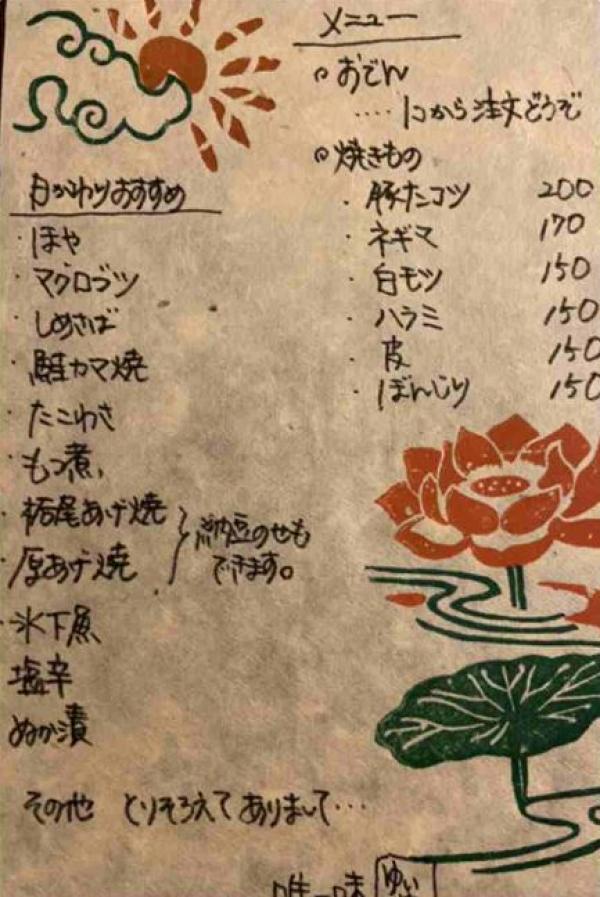 メニュー
◦おでん
‥‥1コから注文どうぞ
◦焼きもの
・豚たんコツ 200
・ネギマ 170
・白モツ 150
・ハラミ 150
・皮 150
・ぼんじり 150
日がわりおすすめ
・ほや
・マグロブツ
・しめさば
・鮭カマ焼
・たこわさ
・もつ煮
・栃尾あげ焼
・厚あげ焼
納豆のせも
できます。
・氷下魚
塩辛
ぬか漬
その他 とりそろえてありまして…
唯一味 ゆい